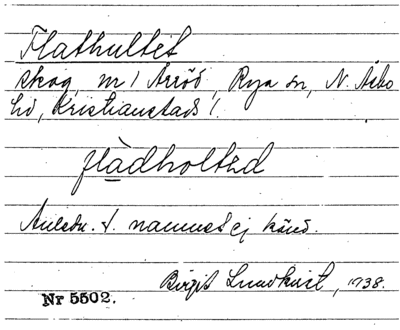 Flathultet
skog, m / Arröd, Rya sn, N. Åsbo
hd, Kristianstads l.
flàdholted
Anledn. t. namnet ej känd.
Birgit Lundkvist, 1938.
Nr 5502.